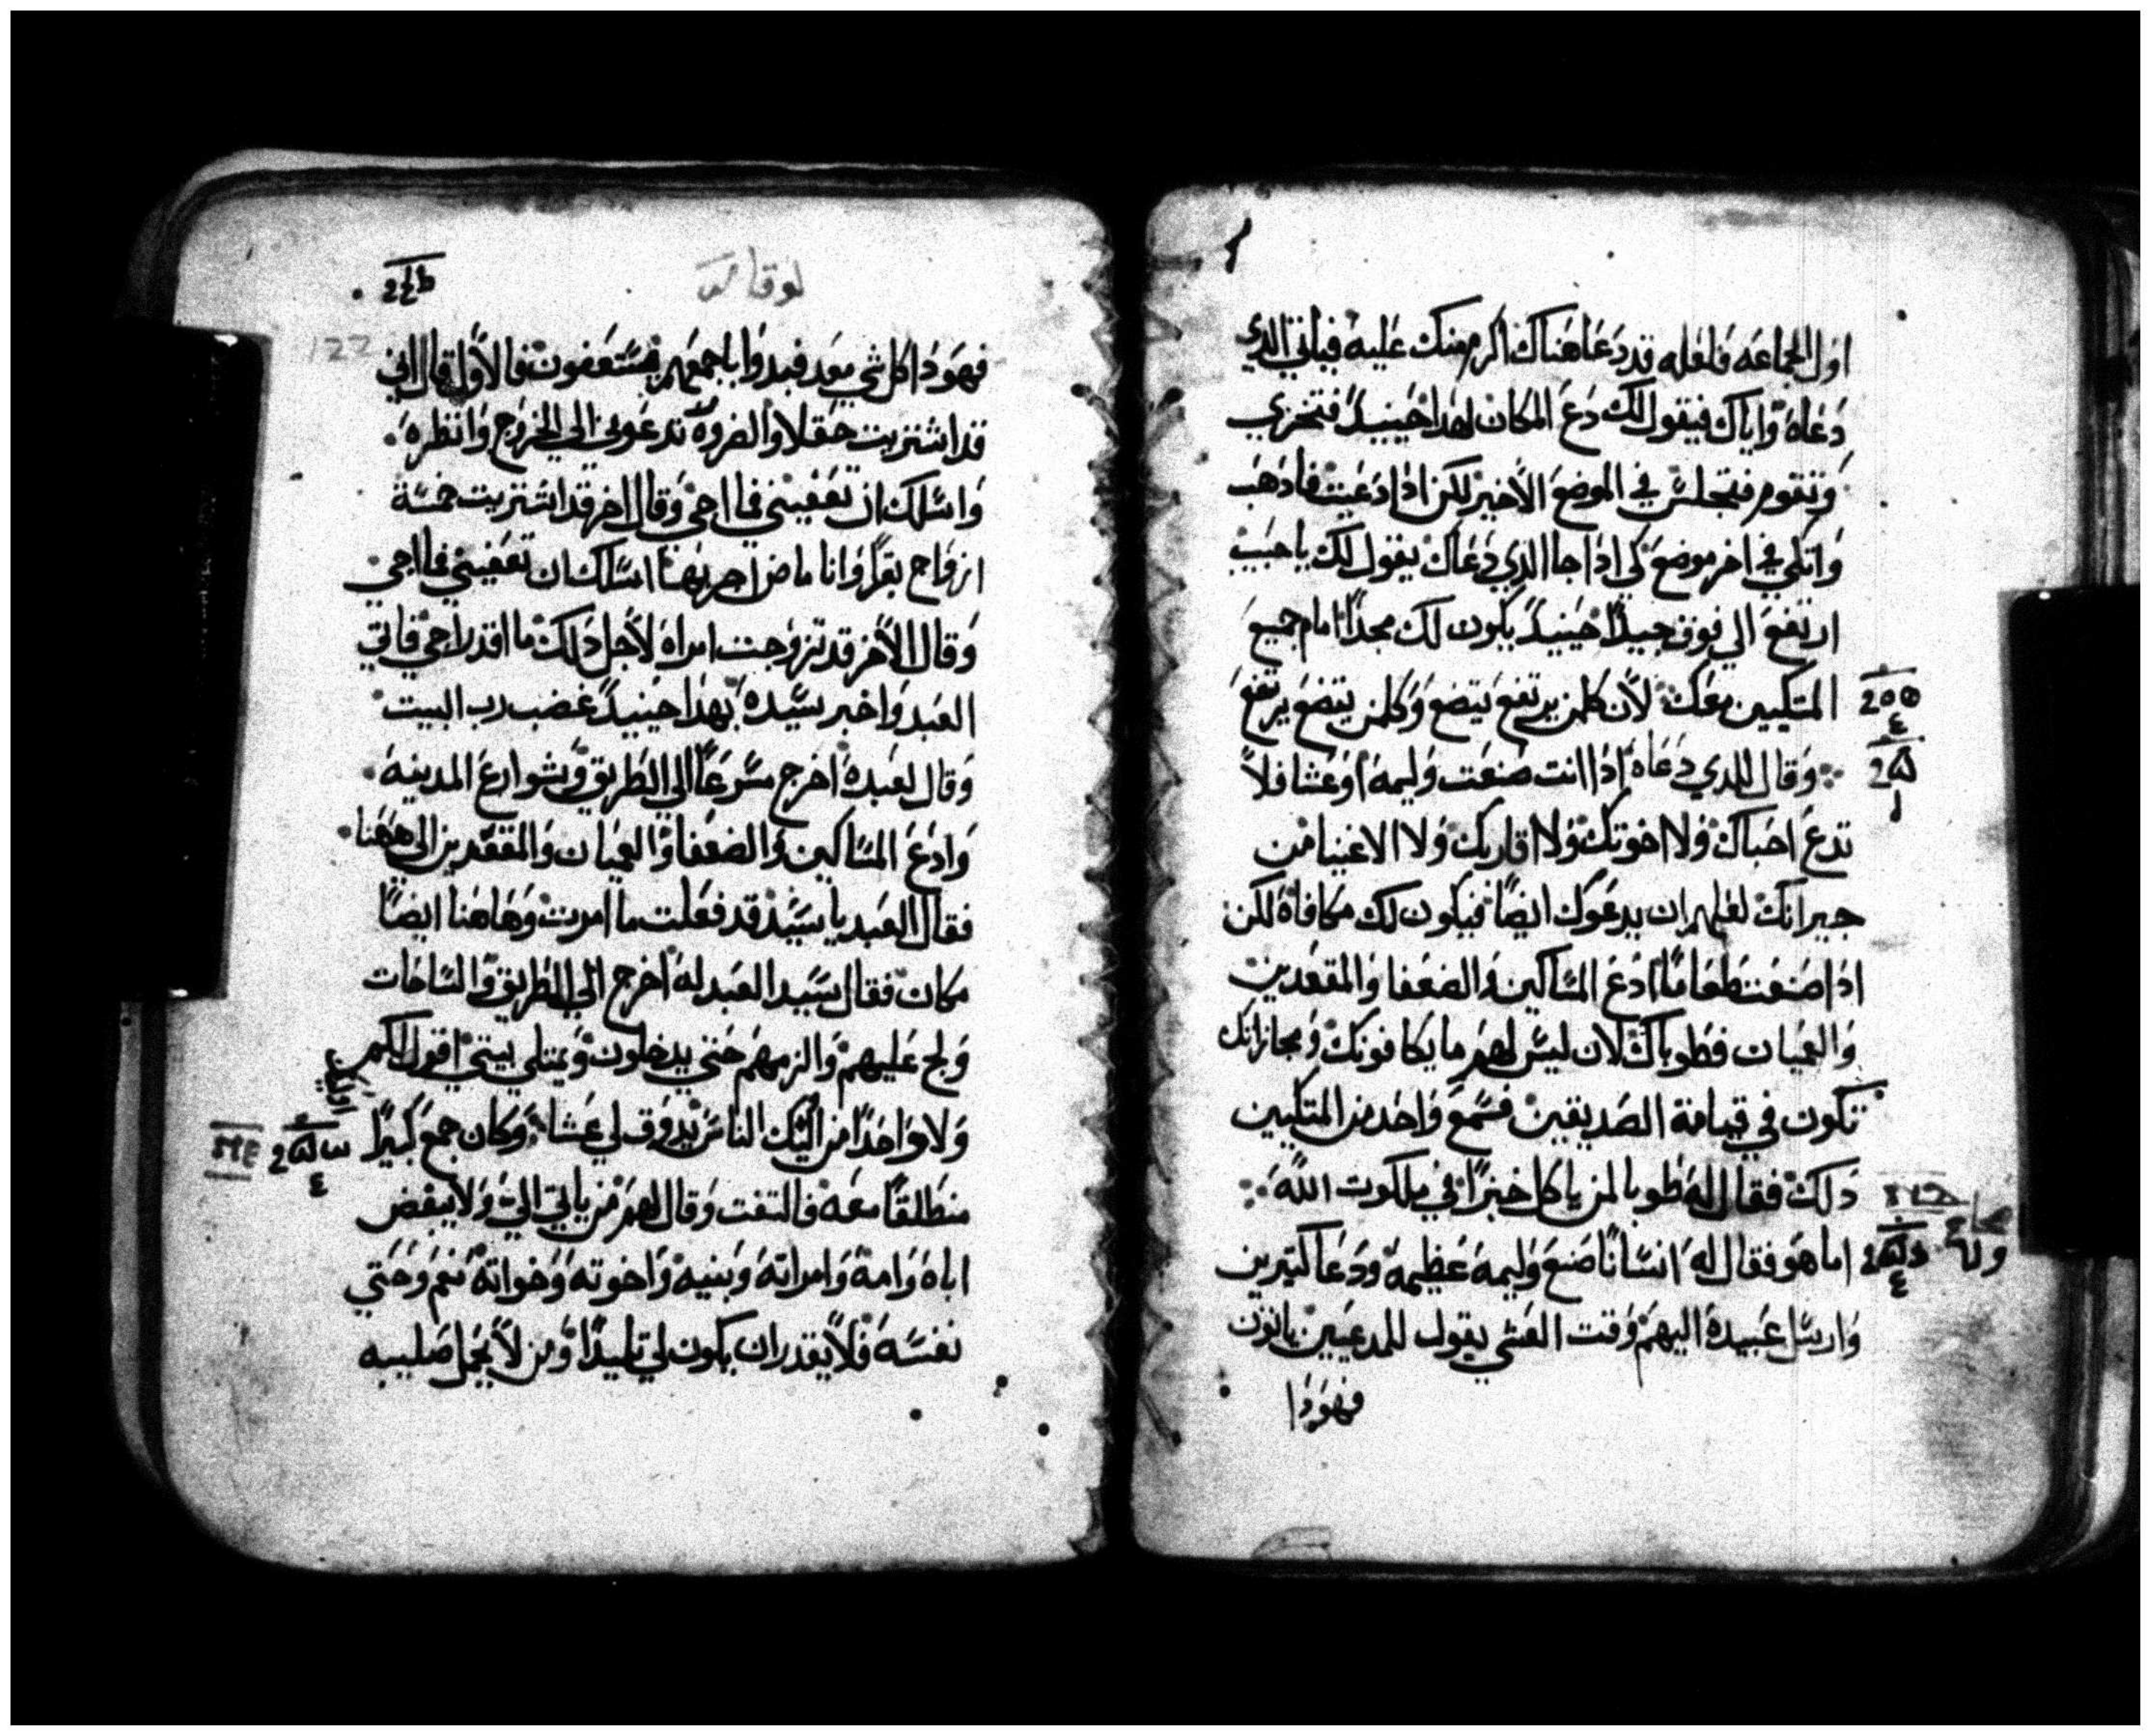 اول الجماعه فلعله قد دعا هناك اكرم منك عليه فياتي الدي
دعاه واياك فيقول لك دع المكان لهدا حينيدً فتخزي
وتقوم فتجلس في الموضع الأخير لكن ادا دعيت فادهب
واتكي في اخر موضع كي ادا جا الدي دعاك يقول لك يا حبيب
ارتفع الي فوق جيداً حينيدً يكون لك مجداً امام جميع
المتكيين معك لأن كلمن يرتفع يتضع وكلمن يتضع يرتفع
وقال للدي دعاه ادا انت صنعت وليمه اوعشا فلا
تدع احباك ولا اخوتك ولا اقاربك ولا الاغنيا من
جيرانك لعلهم ان يدعوك ايضاً فيكون لك مكافاة لكن
ادا صنعت طعاماً ادع المساكين والضعفا والمقعدين
والعميان فطوباك لان ليس لهم ما يكافونك ومجازاتك
تكون في قيامة الصديقين فسمع واحد من المتكيين
دلك فقال له طوبا لمن ياكل خبزاً في ملكوت الله
اما هو فقال له انسانًا صنع وليمه عظيمه ودعا كتيرين
وارسل عبيده اليهم وقت العشي يقول للمدعيين ياتون
فهودا
لوقا
122
فهودا كل شي معد فبدوا باجمعهم يستعفون فالأول قال اني
قد اشتريت حقلا والضروه تدعوني الي الخروج وانظره
واسلك ان تعفيني فما اجي وقال اخر قد اشتريت خمسة
ازواج بقرًا وانا ماض اجربها اسلك ان تعفيني فما اجي
وقال الأخر قد تزوجت امراه لأجل دلك ما اقدر اجي فاتي
العبد واخبر سيده بهدا حينيدً غضب رب البيت
وقال لعبده اخرج مسرعًا الي الطريق وشوارع المدينه
وادع المساكين والضعفا والعميان والمقعدين الي هاهنا
فقال العبد يا سيد قد فعلت ما امرت وهاهنا ايضًا
مكان فقال سيد العبد له اخرج الي الطريق والساحات
ولج عليهم والزمهم حتي يدخلون ويمتلي بيتي اقول لكم
ولا واحدًا من اليك الناس يدوق لي عشا وكان جمع كبيرًا
منطلقًا معه فالتفت وقال لهم من ياتي الي ولا يبغض
اباه وامه وامراته وبنيه واخوته وخواته نعم وحتي
نفسه فلا يقدر ان يكون لي تلميدًا ومن لأ يحمل صليبه